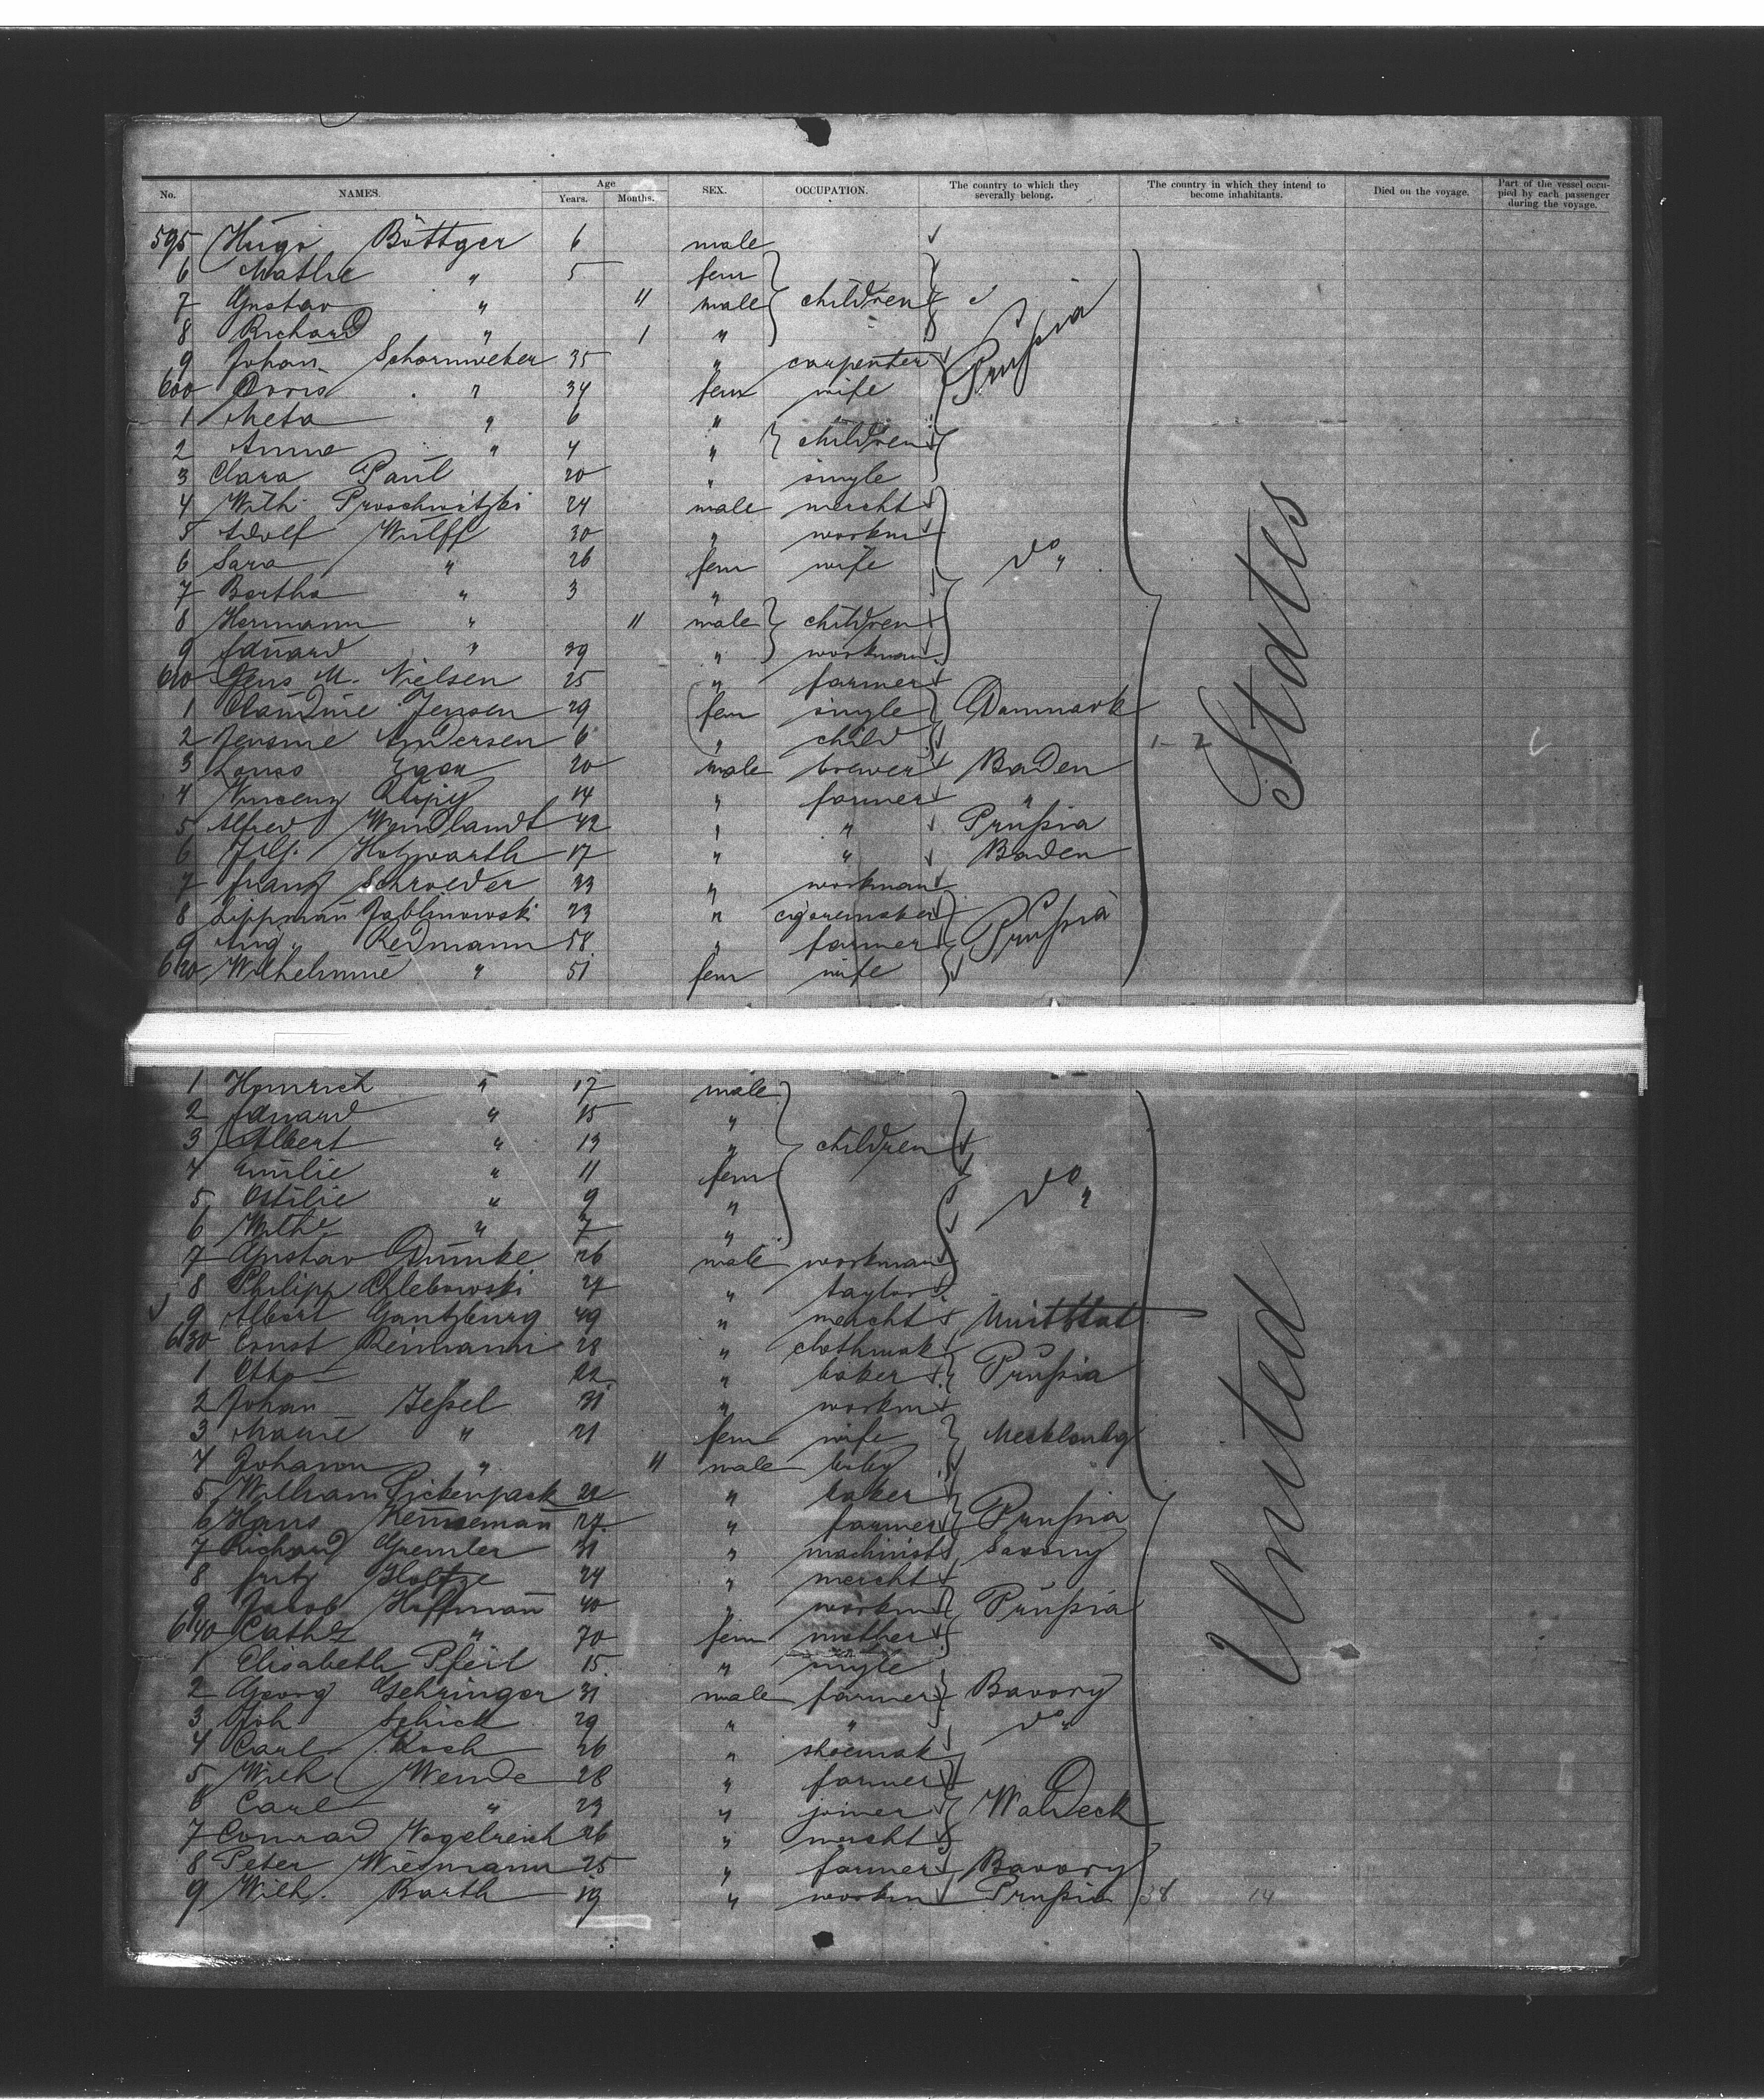 No. NAMES. Age Years. Months. SEX. OCCUPATION. The country to which they severally belong. The country in which they intend to become inhabitants. Died on the voyage. Part of the vessel occupied by each passenger during the voyage.
595 Hugo Böttger 6 male
6 Mathe " 5 fem
7 Gustav " 11 male children
8 Richard " 1 "
9 Johan Schornweber 35 " carpenter Prußia
600 Doris " 34 fem wife
1 Meta " 6 "
2 Anna " 4 " children
3 Clara Paul 20 " single
4 Wilh Proschwitzki 24 male mercht
5 Adolf Wulff 30 " workm
6 Sara " 26 fem wife do "
7 Bertha " 3 "
8 Hermann " 11 male children
9 Eduard " 39 " workman
610 Jens M. Nielsen 25 " farmer
1 Claudine Jensen 29 fem single Danmark
2 Jensine Andersen 6 " child 1-2
3 Egon 20 male brewer Baden
4 Vincenz 14 " farmer "
5 Alfred Wendlandt 42 " " Prußia
6 Holzwarth 17 " " Baden
7 Franz Schroeder 33 " workman
8 Lippman Jablinowski 23 " cigaremaker Prußia
9 Aug. Redmann 58 " farmer
620 Wilhelmine " 51 fem wife
States
1 Heinrich " 17 male
2 Eduard " 15 "
3 Albert " 13 " children
4 Emilie " 11 fem
5 Ottilie " 9 " do "
6 Wilhe " 7 "
7 Gustav Dumke 26 male workman
8 Philipp Chlebowski 27 " taylor
9 Albert Gantzburg 49 " mercht Unit Stat
630 Ernst Reimann 28 " clothmak
1 Otto — 22 " baker Prußia
2 Johan Jeßel 31 " workm
3 Marie " 21 fem wife Mecklenbg
4 Johann " 11 male baby
5 William Pickenpack 24 " baker
6 Hans Kenneman 27 " farmer Prußia
7 Richard Gremler 31 " machinist Saxony
8 Fritz Holtze 24 " mercht
9 Jacob Hoffman 40 " workm Prußia
640 Cath " 70 fem mother
1 Elisabeth Pfeil 15 " single
2 Georg Gehringer 31 male farmer Bavory
3 Joh Schick 29 " " do "
4 Carl Koch 26 " shoemak
5 Wilh Wende 28 " farmer
6 Carl " 23 " joiner Waldeck
7 Conrad Vogelreich 26 " mercht
8 Peter Wiegmann 25 " farmer Bavory
9 Wilh. Barth 19 " workm Prußia 38 14
United